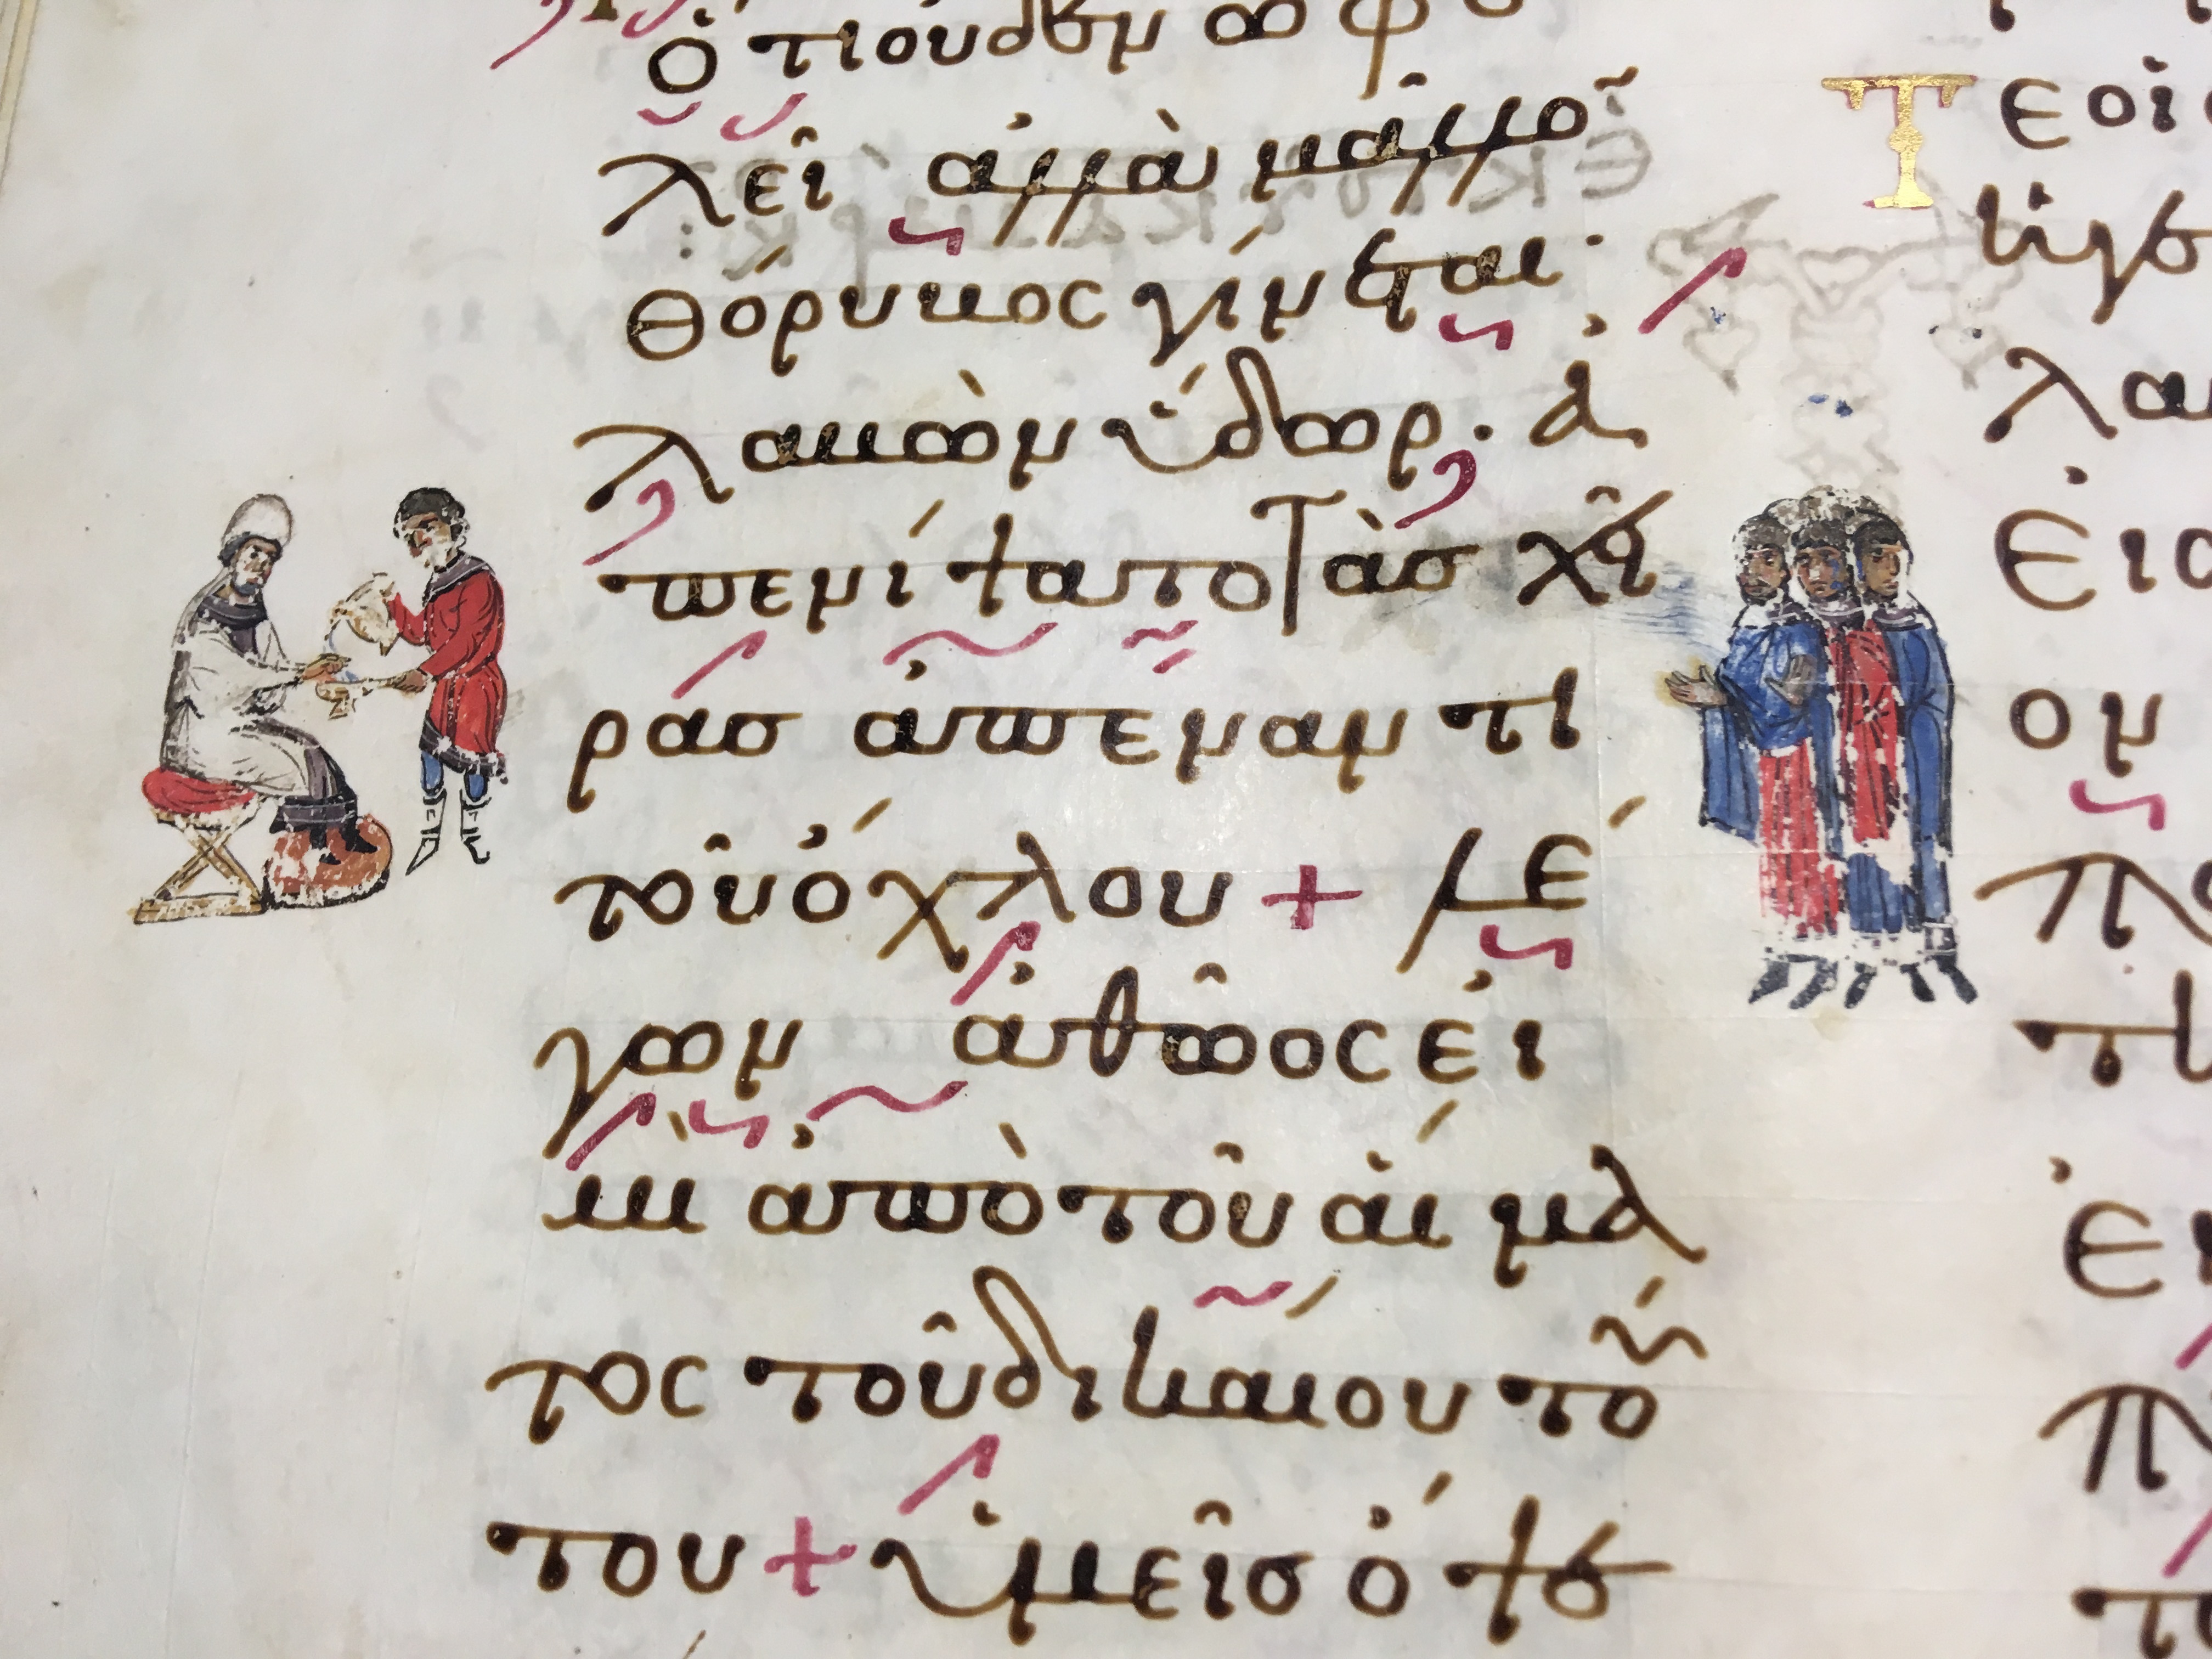 ὅτι οὐδὲν ὠφε
λεῖ ἀλλὰ μᾶλλο͂
θόρυβος γίνεται·
λαβὼν ὕδωρ· ἀ
πενίψατο τὰσ χεῖ
ρασ ἀπέναντι
τοῦ ὄχλου + λέ
γων ἀθῶος εἰ
μὶ ἀπὸ τοῦ αἵμα
τος τοῦ δικαίου τού
του + ὑμεῖσ ὄψε
Τ εοἱ
λα
ον